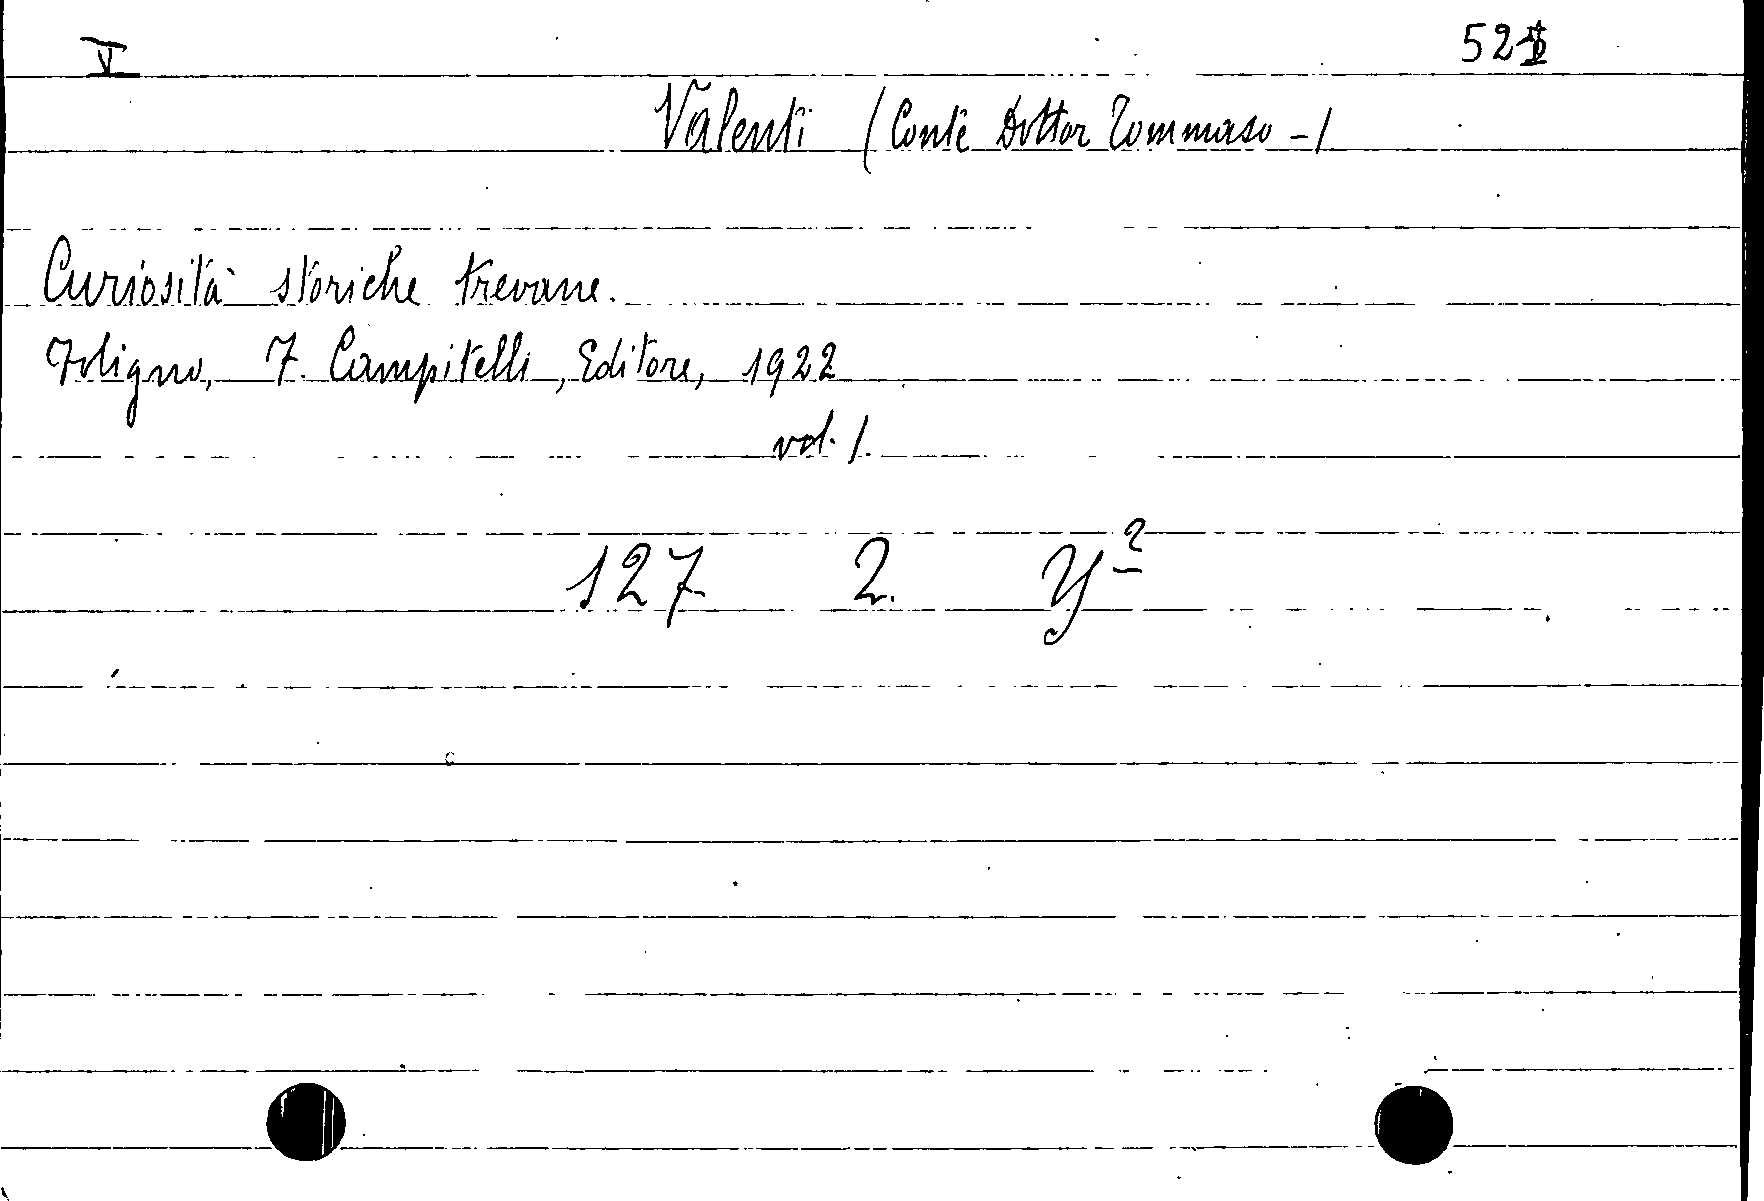 V
Valenti (Conte Dottor Tommaso -)
Curiosità storiche trevane.
Foligno, F. Campitelli, Editore, 1922
vol. 1.
127 2. Y²